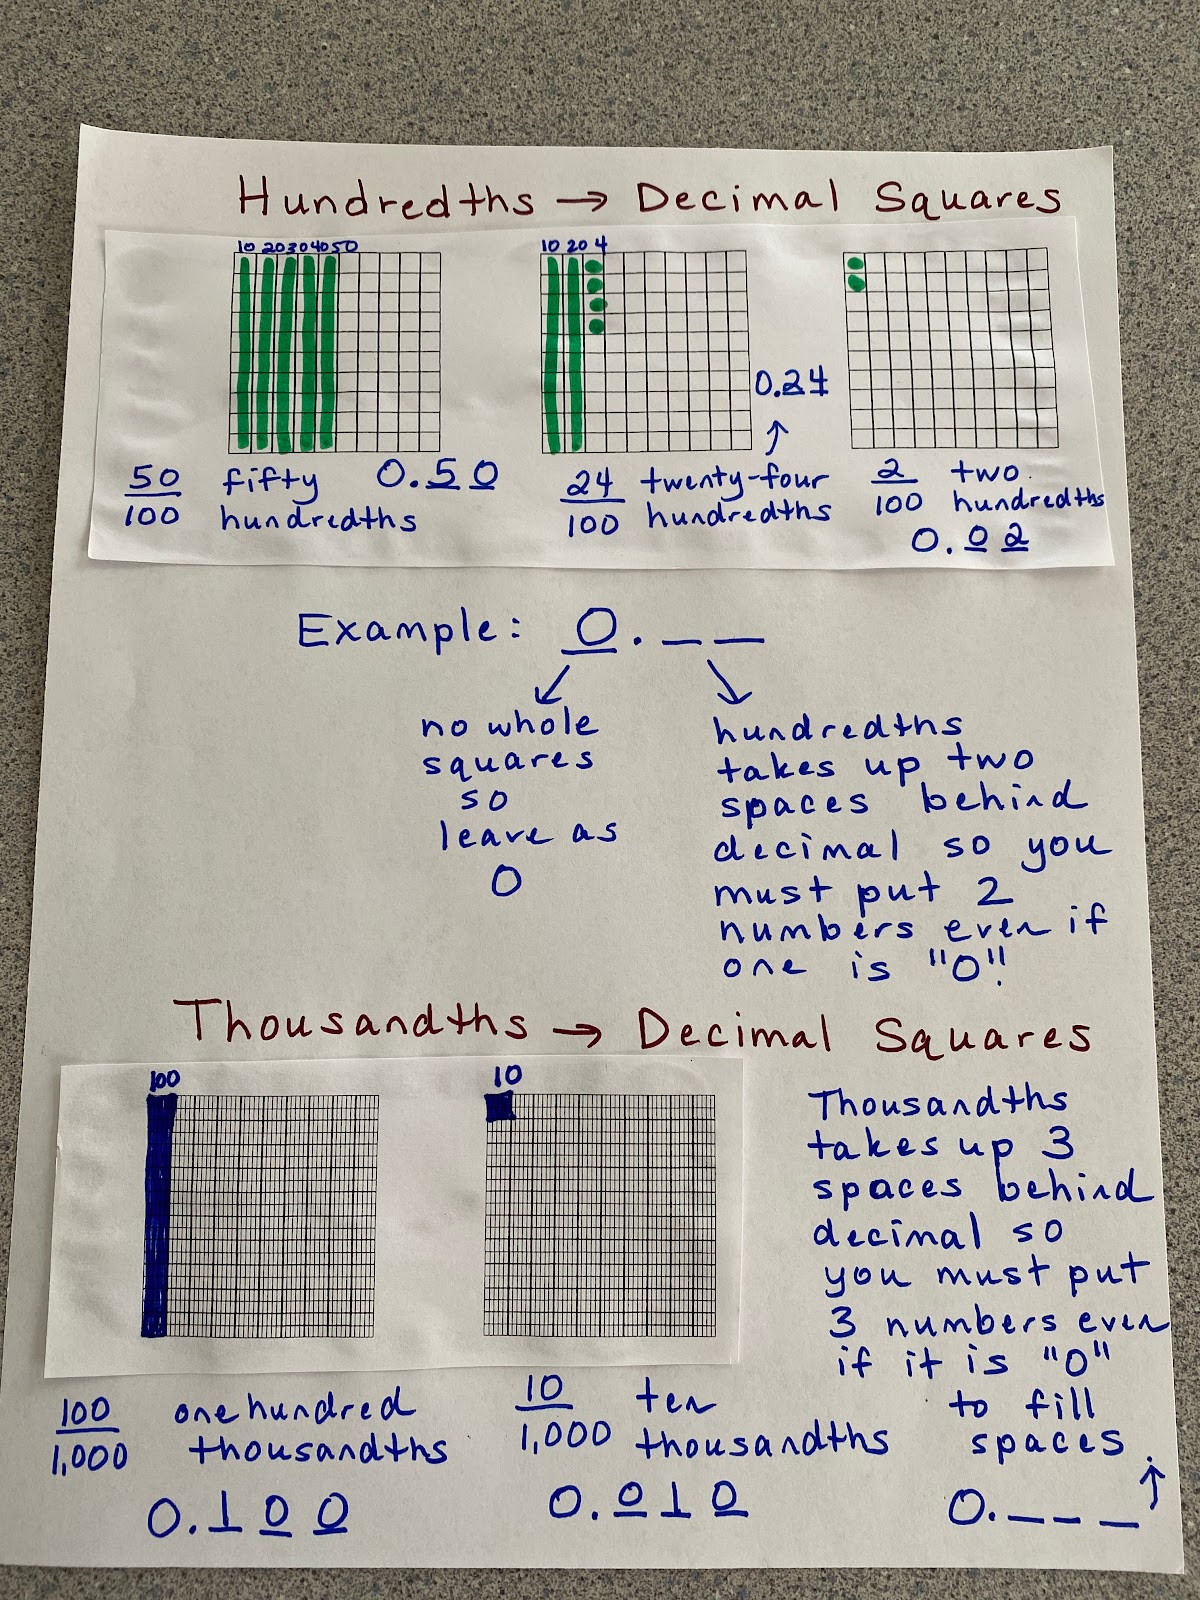 Hundredths → Decimal Squares
10 20 30 40 50
10 20 4
0.24
50/100 fifty hundredths 0.50
24/100 twenty-four hundredths
2/100 two hundredths
0.02
Example: 0. _ _
no whole
squares
so
leave as
0
hundredths
takes up two
spaces behind
decimal so you
must put 2
numbers even if
one is "0"!
Thousandths → Decimal Squares
100
10
100/1,000 one hundred
thousandths
0.100
10/1,000 ten
thousandths
0.010
Thousandths
takes up 3
spaces behind
decimal so
you must put
3 numbers even
if it is "0"
to fill
spaces.
0. _ _ _